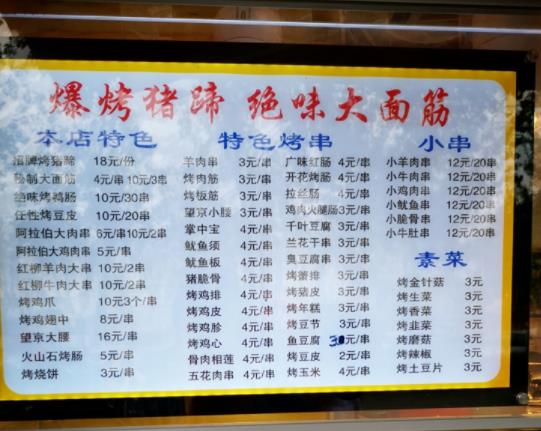 爆烤猪蹄 绝味大面筋
本店特色
招牌烤猪蹄 18元/份
秘制大面筋 4元/串 10元/3串
绝味烤鸭肠 10元/30串
任性烤豆皮 10元/20串
阿拉伯大肉串 6元/串10元/2串
阿拉伯大鸡肉串 5元/串
红柳羊肉大串 10元/2串
红柳牛肉大串 10元/2串
烤鸡爪 10元3个/串
烤鸡翅中 8元/串
望京大腰 16元/串
火山石烤肠 5元/串
烤烧饼 3元/串
特色烤串
羊肉串 3元/串
烤肉筋 3元/串
烤板筋 3元/串
望京小腰 3元/串
掌中宝 4元/串
鱿鱼须 4元/串
鱿鱼板 4元/串
猪脆骨 4元/串
烤鸡排 4元/串
烤鸡皮 4元/串
烤鸡胗 4元/串
烤鸡心 4元/串
骨肉相莲 4元/串
五花肉串 4元/串
广味红肠 4元/串
开花烤肠 4元/串
拉丝肠 4元/串
鸡肉火腿肠 3元/串
千叶豆腐 3元/串
兰花干串 3元/串
臭豆腐串 3元/串
烤蕾排 3元/串
烤猪皮 3元/串
烤年糕 3元/串
烤豆节 3元/串
鱼豆腐 3元/串
烤豆皮 2元/串
烤玉米 4元/串
小串
小羊肉串 12元/20串
小牛肉串 12元/20串
小鸡肉串 12元/20串
小鱿鱼串 12元/20串
小脆骨串 12元/20串
小牛肚串 12元/20串
素菜
烤金针菇 3元
烤生菜 3元
烤香菜 3元
烤韭菜 3元
烤蘑菇 3元
烤辣椒 3元
烤土豆片 3元